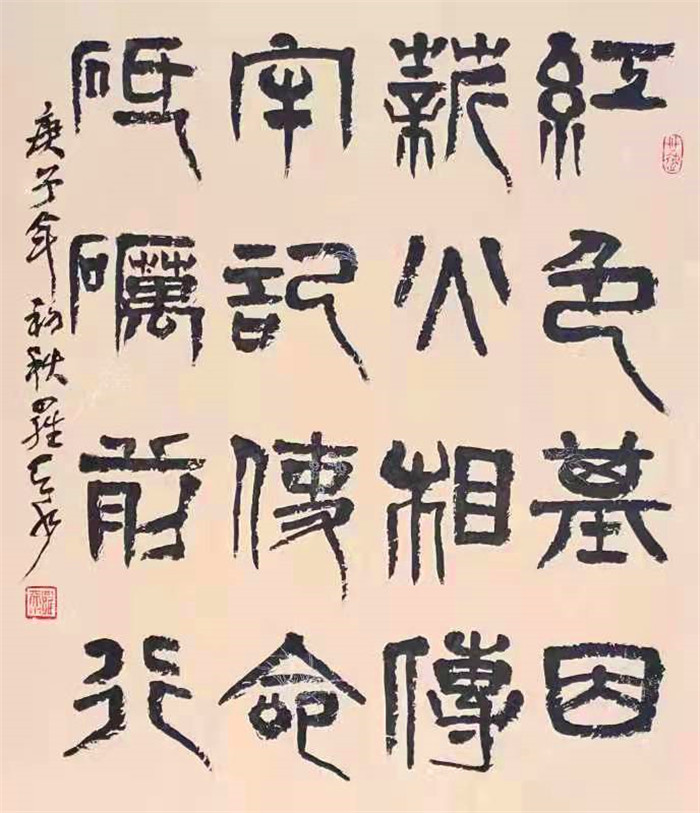 紅色基因
薪火相傳
牢記使命
砥礪前行
庚子年初秋羅